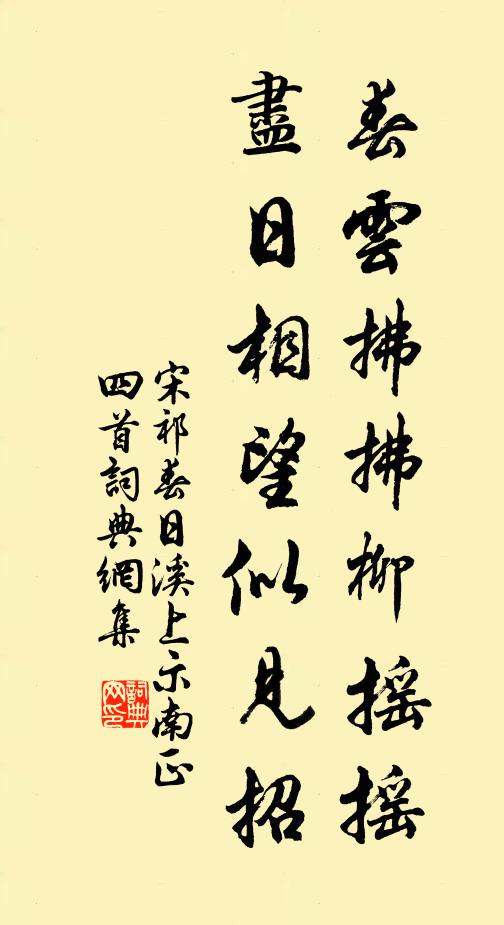 春雲拂拂柳搖搖
盡日相望似見招
宋祁春日溪上示南正
四首詞典網集
詞典網印